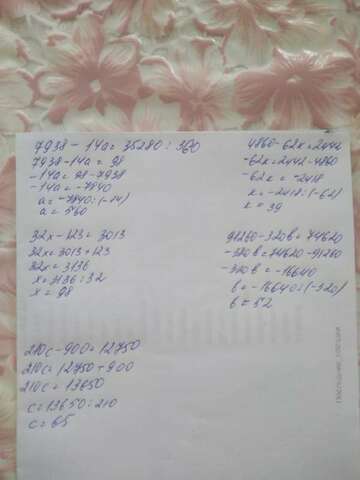 7938 - 14a = 35280 : 360
7938 - 14a = 98
-14a = 98 - 7938
-14a = -7840
a = -7840 : (-14)
a = 560
4860 - 62к = 2442
-62к = 2442 - 4860
-62к = -2418
к = -2418 : (-62)
к = 39
32x - 123 = 3013
32x = 3013 + 123
32x = 3136
x = 3136 : 32
x = 98
91260 - 320в = 74620
-320в = 74620 - 91260
-320в = -16640
в = -16640 : (-320)
в = 52
210c - 900 = 12750
210c = 12750 + 900
210c = 13650
c = 13650 : 210
c = 65